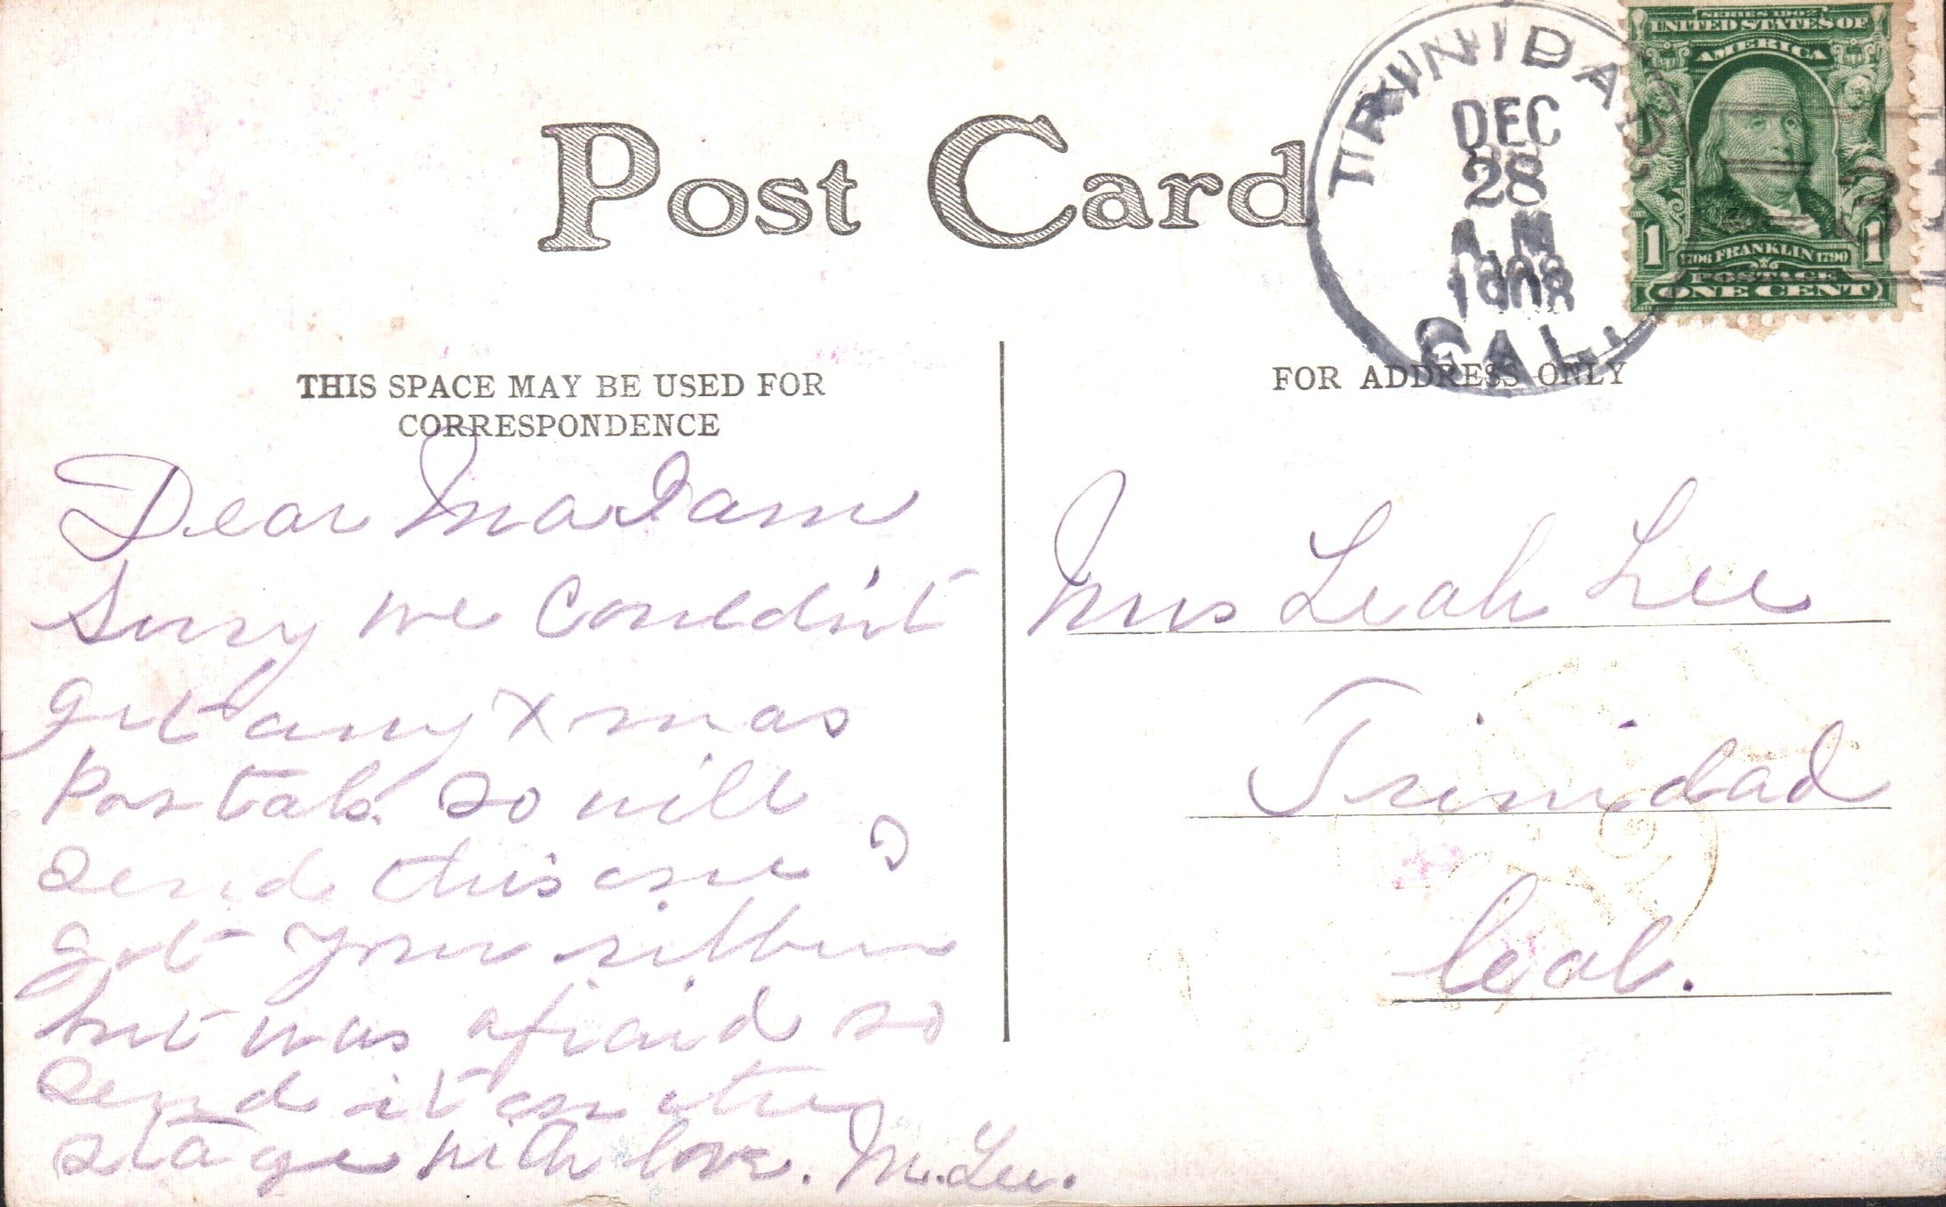 Post Card
TRINIDAD
DEC
28
A.M
1908
CAL.
SERIES 1902
UNITED STATES OF
AMERICA
3
1 1706 FRANKLIN 1790 1
POSTAGE
ONE CENT
THIS SPACE MAY BE USED FOR
CORRESPONDENCE
Dear Madam
Sorry we couldn't
get any Xmas
Postals. so will
send this one I
got your ribbon
but was afraid so
send it on
stage with love. M. Lee.
FOR ADDRESS ONLY
Mrs Leah Lee
Trinidad
Cal.